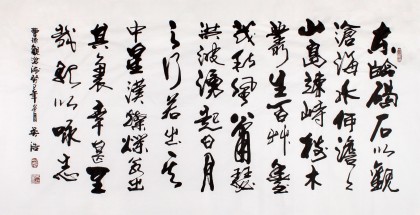 東臨碣石以觀
滄海水何澹々
山島竦峙樹木
叢生百艸豐
茂秋風蕭瑟
洪波湧起日月
之行若出其
中星漢燦爛若出
其裏幸甚至
哉歌以咏志
曹操觀滄海